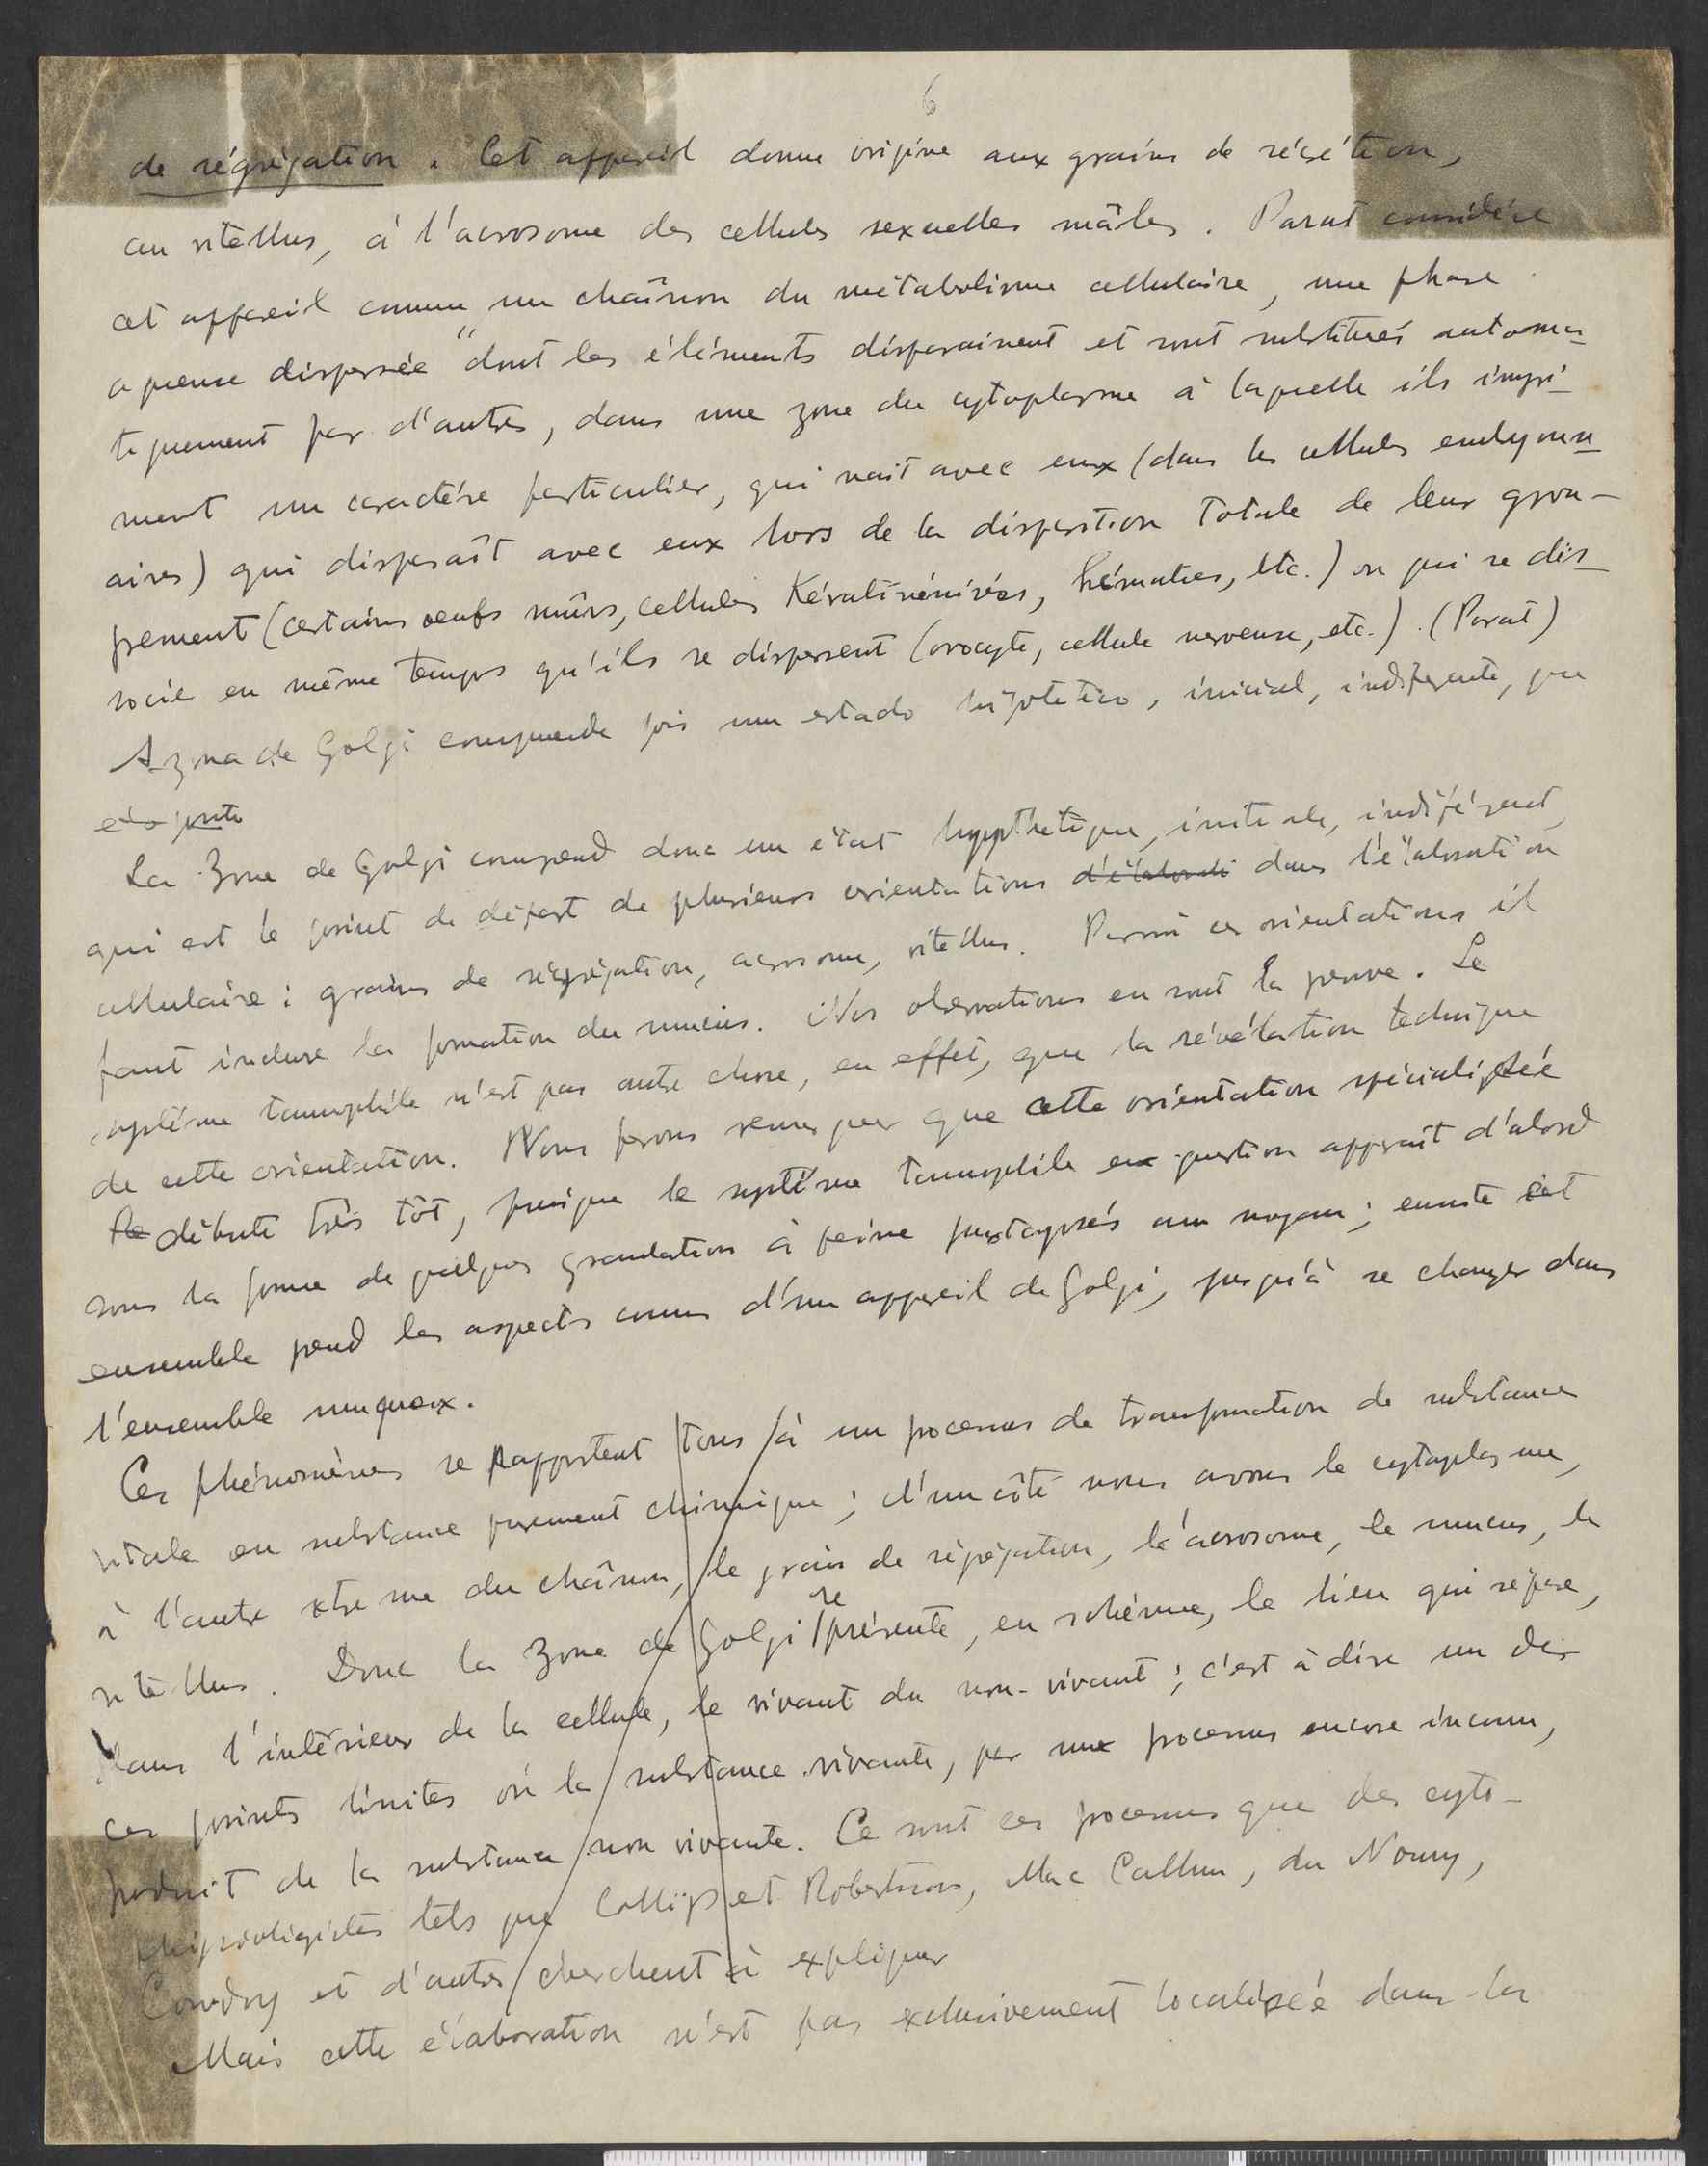 6
de ségrégation. Cet appareil donne origine aux grains de sécrétion,
au vitellus, à l'acrosome des cellules sexuelles mâles. Parat considère
cet appareil comme un chaînon du métabolisme cellulaire, une phase
aqueuse dispersée "dont les éléments disparaissent et sont substitués automa-
tiquement par d'autres, dans une zone du cytoplasme à laquelle ils impri-
ment un caractère particulier, qui nait avec eux (dans les cellules embryonn-
aires) qui disparaît avec eux lors de la disparition totale de leur grou-
pement (certains oeufs mûrs, cellules Kératinisées, hématies, etc.) ou qui se dis-
socie en même temps qu'ils se dispersent (ovocyte, cellule nerveuse, etc.). (Parat)
A zona de Golgi comprende pois um estado hipotetico, inicial, indiferente, que
é o ponto
La Zone de Golgi comprend donc un état hypothetique, initiale, indifférent,
qui est le point de départ de plusieurs orientations d'élaborati dans l'élaboration
cellulaire: grains de ségrégation, acrosome, vitellus. Parmi ces orientations il
faut inclure la formation du mucus. Nos observations en sont la preuve. Le
système tannophile n'est pas autre chose, en effet, que la révélation technique
de cette orientation. Nous ferons remarquer que cette orientation spécialisée
se débute très tôt, puisque le système tannophile en question apparaît d'abord
sous la forme de quelques granulations à peine juxtaposés au noyau; ensuite cet
ensemble prend les aspects connus d'un appareil de Golgi, jusqu'à se changer dans
l'ensemble muqueux.
Ces phénomènes se rapportent tous à un processus de transformation de substance
vitale en substance purement chimique; d'un côté nous avons le cytoplasme,
à l'autre xtreme du chaînon, le grain de ségrégation, le acrosome, le mucus, le
vitellus. Donc la Zone de Golgi représente, en schéma, le lieu qui sépare,
dans l'intérieur de la cellule, le vivant du non-vivant; c'est à dire un des
ces points limites où la substance vivante, par une processus encore inconnu,
produit de la substance non vivante. Ce sont ces processus que des cyto-
phisiologistes tels que Collip et Robertson, Mac Callum, du Nouny,
Cowdry et d'autres cherchent à expliquer
Mais cette élaboration n'est pas exclusivement localisée dans la